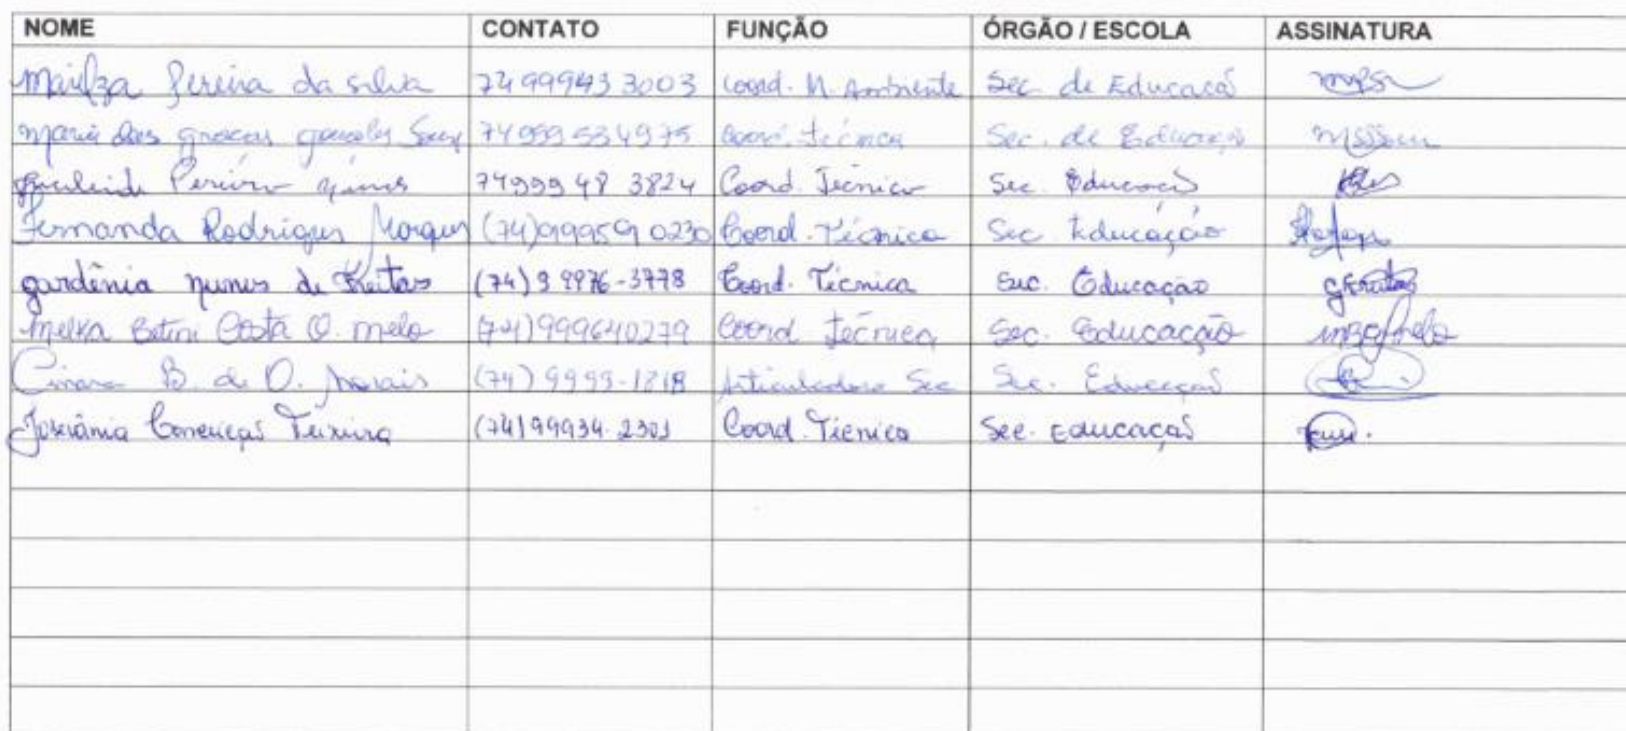 NOME CONTATO FUNÇÃO ÓRGÃO / ESCOLA ASSINATURA
Pereira da silva 74 999433003 Coord. M. Ambiente Sec. de Educacã mpsr
maria das graças 74 999534975 Coord. técnica Sec. de Educação
Pereira 74999 48 3824 Coord. Técnica Sec. Educacã
Fernanda Rodrigues Marques (74)999590230 Coord. Técnica Sec Educação
gardênia nunes de Freitas (74) 9 9976-3778 Coord. Técnica Sec. Educação gfreitas
melka Costa O. melo (74)999640279 Coord técnica Sec. Educacação
B. de O. Morais (74) 9999-1818 Articuladora Sec Sec. Educaçaõ
Teixeira (74)99934-2301 Coord. Técnica Sec. Educaçaõ